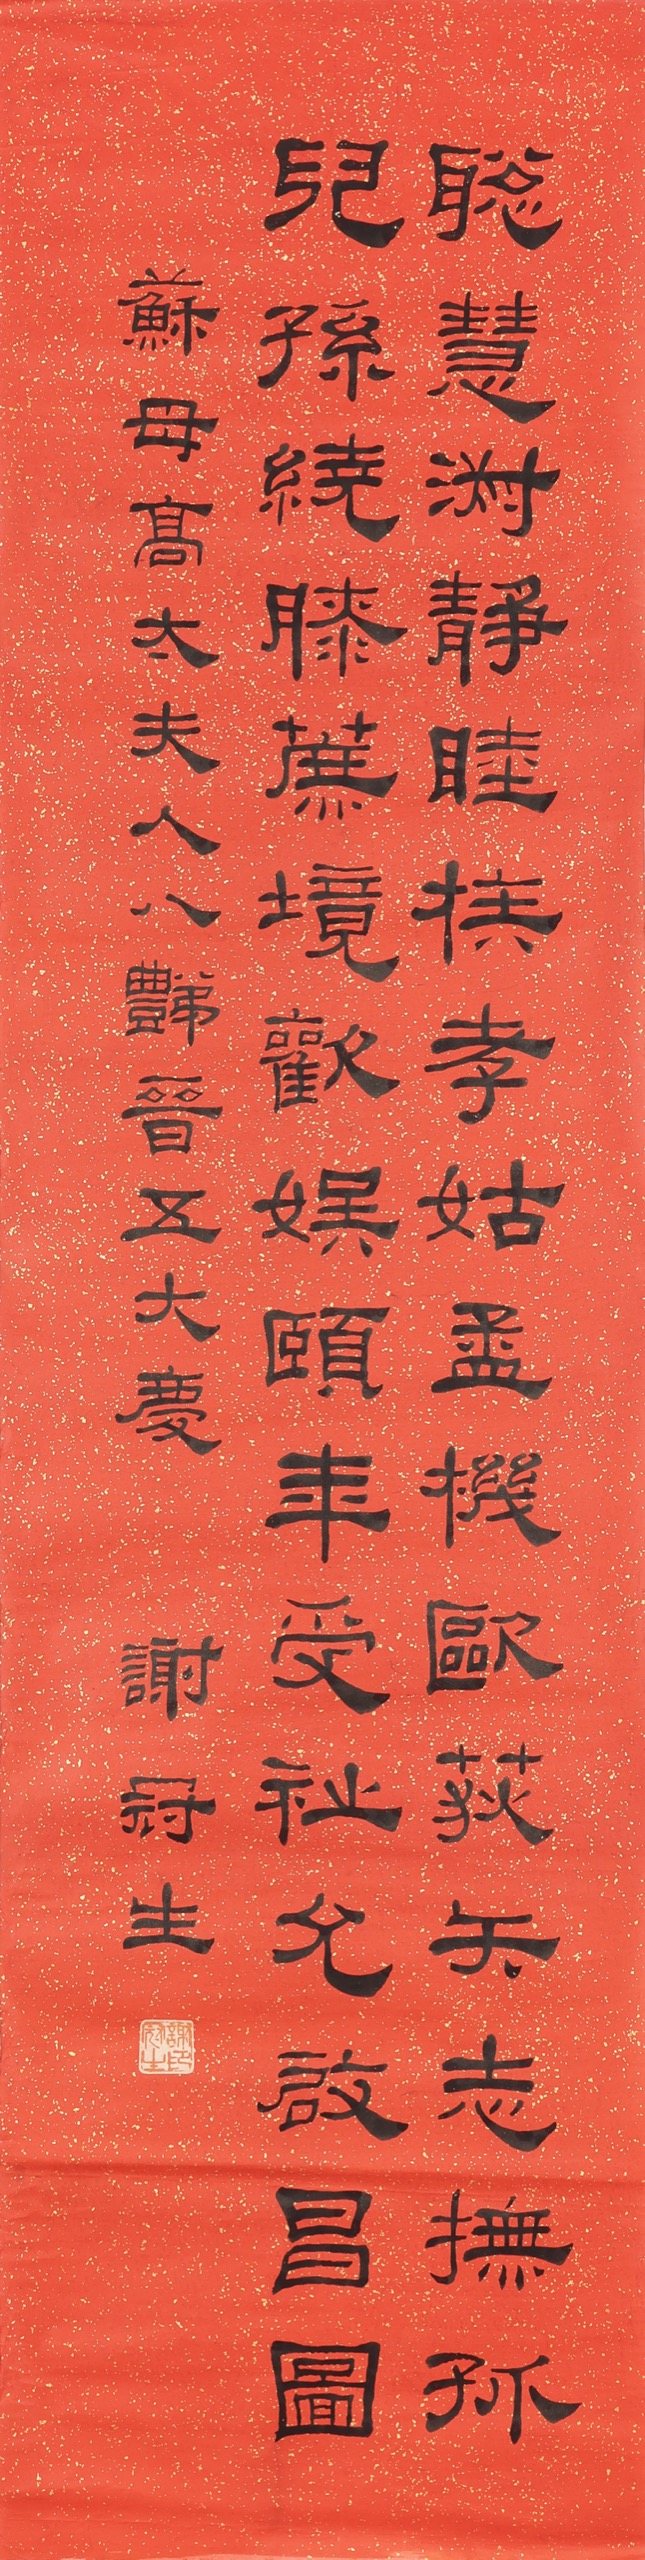 聡慧淑靜睦族孝姑孟機歐荻矢志撫孤
兒孫繞膝蔗境歡娛頤年受祉允啟昌圖
蘇母高太夫人八豑晉五大慶 謝冠生
謝冠生印